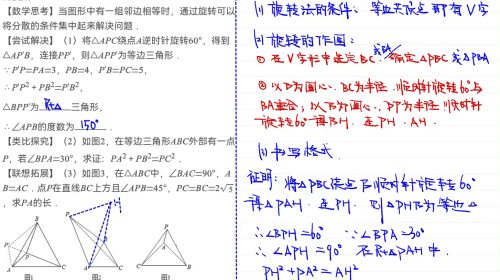 【数学思考】当图形中有一组邻边相等时，通过旋转可以
将分散的条件集中起来解决问题．
【尝试解决】（1）将△APC绕点A逆时针旋转60°，得到
△AP'B，连接PP'，则△APP'为等边三角形．
∵P'P=PA=3，PB=4，P'B=PC=5，
∴P'P²+PB²=P'B²，
△BPP'为 Rt△ 三角形，
∴∠APB的度数为 150° ．
【类比探究】（2）如图2，在等边三角形ABC外部有一点
P，若∠BPA=30°，求证：PA²+PB²=PC²．
【联想拓展】（3）如图3，在△ABC中，∠BAC=90°，A
B=AC．点P在直线BC上方且∠APB=45°，PC=BC=2√5
，求PA的长．
H
P B B P
P' P
A C A C B C
图1 图2 图3
(1) 旋转法的条件：等边
(2) 旋转的作图：
① 在V字形中选定BC 或BA 确定△PBC 或△PBA
② 以B为圆心．BC为半径．顺时针旋转60°与
BA重合；以B为圆心．BP为半径顺时针
旋转60°得BH．连PH．AH．
(3) 书写格式．
证明：将△PBC绕点B顺时针旋转60°
得△PAH．连PH．则△PHB为等边△
∴∠BPH=60° ∵∠BPA=30°
∴∠APH=90° 在Rt△PAH中．
PH²+PA²=AH²